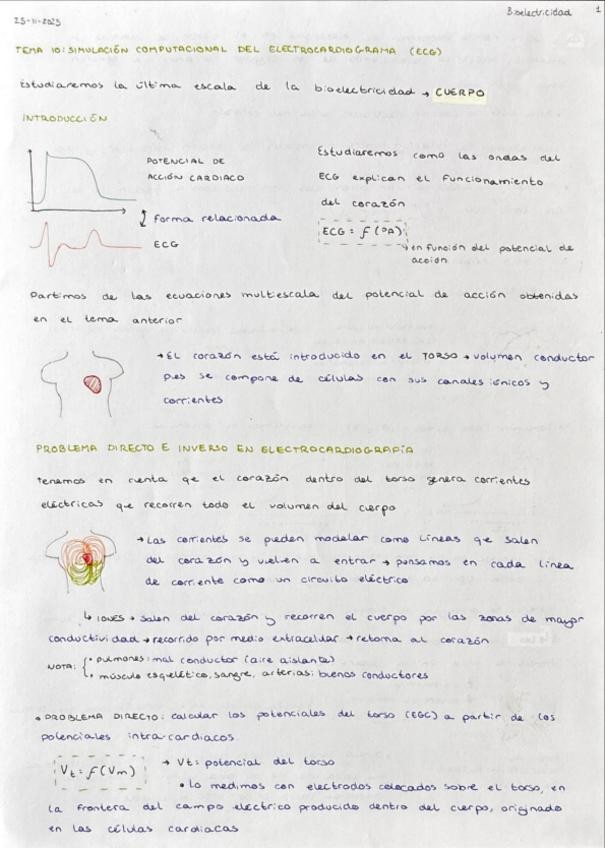 Bioelectricidad 1
25-11-2025
TEMA 10: SIMULACIÓN COMPUTACIONAL DEL ELECTROCARDIOGRAMA (ECG)
Estudiaremos la última escala de la bioelectricidad → CUERPO
INTRODUCCIÓN
POTENCIAL DE
ACCIÓN CARDIACO
forma relacionada
ECG
Estudiaremos como las ondas del
ECG explican el funcionamiento
del corazón
ECG = f (PA)
→ en función del potencial de
acción
Partimos de las ecuaciones multiescala del potencial de acción obtenidas
en el tema anterior
→ El corazón está introducido en el TORSO → volumen conductor
pues se compone de células con sus canales iónicos y
corrientes
PROBLEMA DIRECTO E INVERSO EN ELECTROCARDIOGRAFÍA
Tenemos en cuenta que el corazón dentro del torso genera corrientes
eléctricas que recorren todo el volumen del cuerpo
→ Las corrientes se pueden modelar como líneas que salen
del corazón y vuelven a entrar → pensamos en cada línea
de corriente como un circuito eléctrico
↳ IONES → salen del corazón y recorren el cuerpo por las zonas de mayor
conductividad → recorrido por medio extracelular → retorna al corazón
NOTA: { • pulmones: mal conductor (aire aislante)
• músculo esquelético, sangre, arterias: buenos conductores
• PROBLEMA DIRECTO: calcular los potenciales del torso (EGC) a partir de los
potenciales intra-cardiacos
Vt = f(Vm) → Vt: potencial del torso
• Lo medimos con electrodos colocados sobre el torso, en
la frontera del campo eléctrico producido dentro del cuerpo, originado
en las células cardiacas